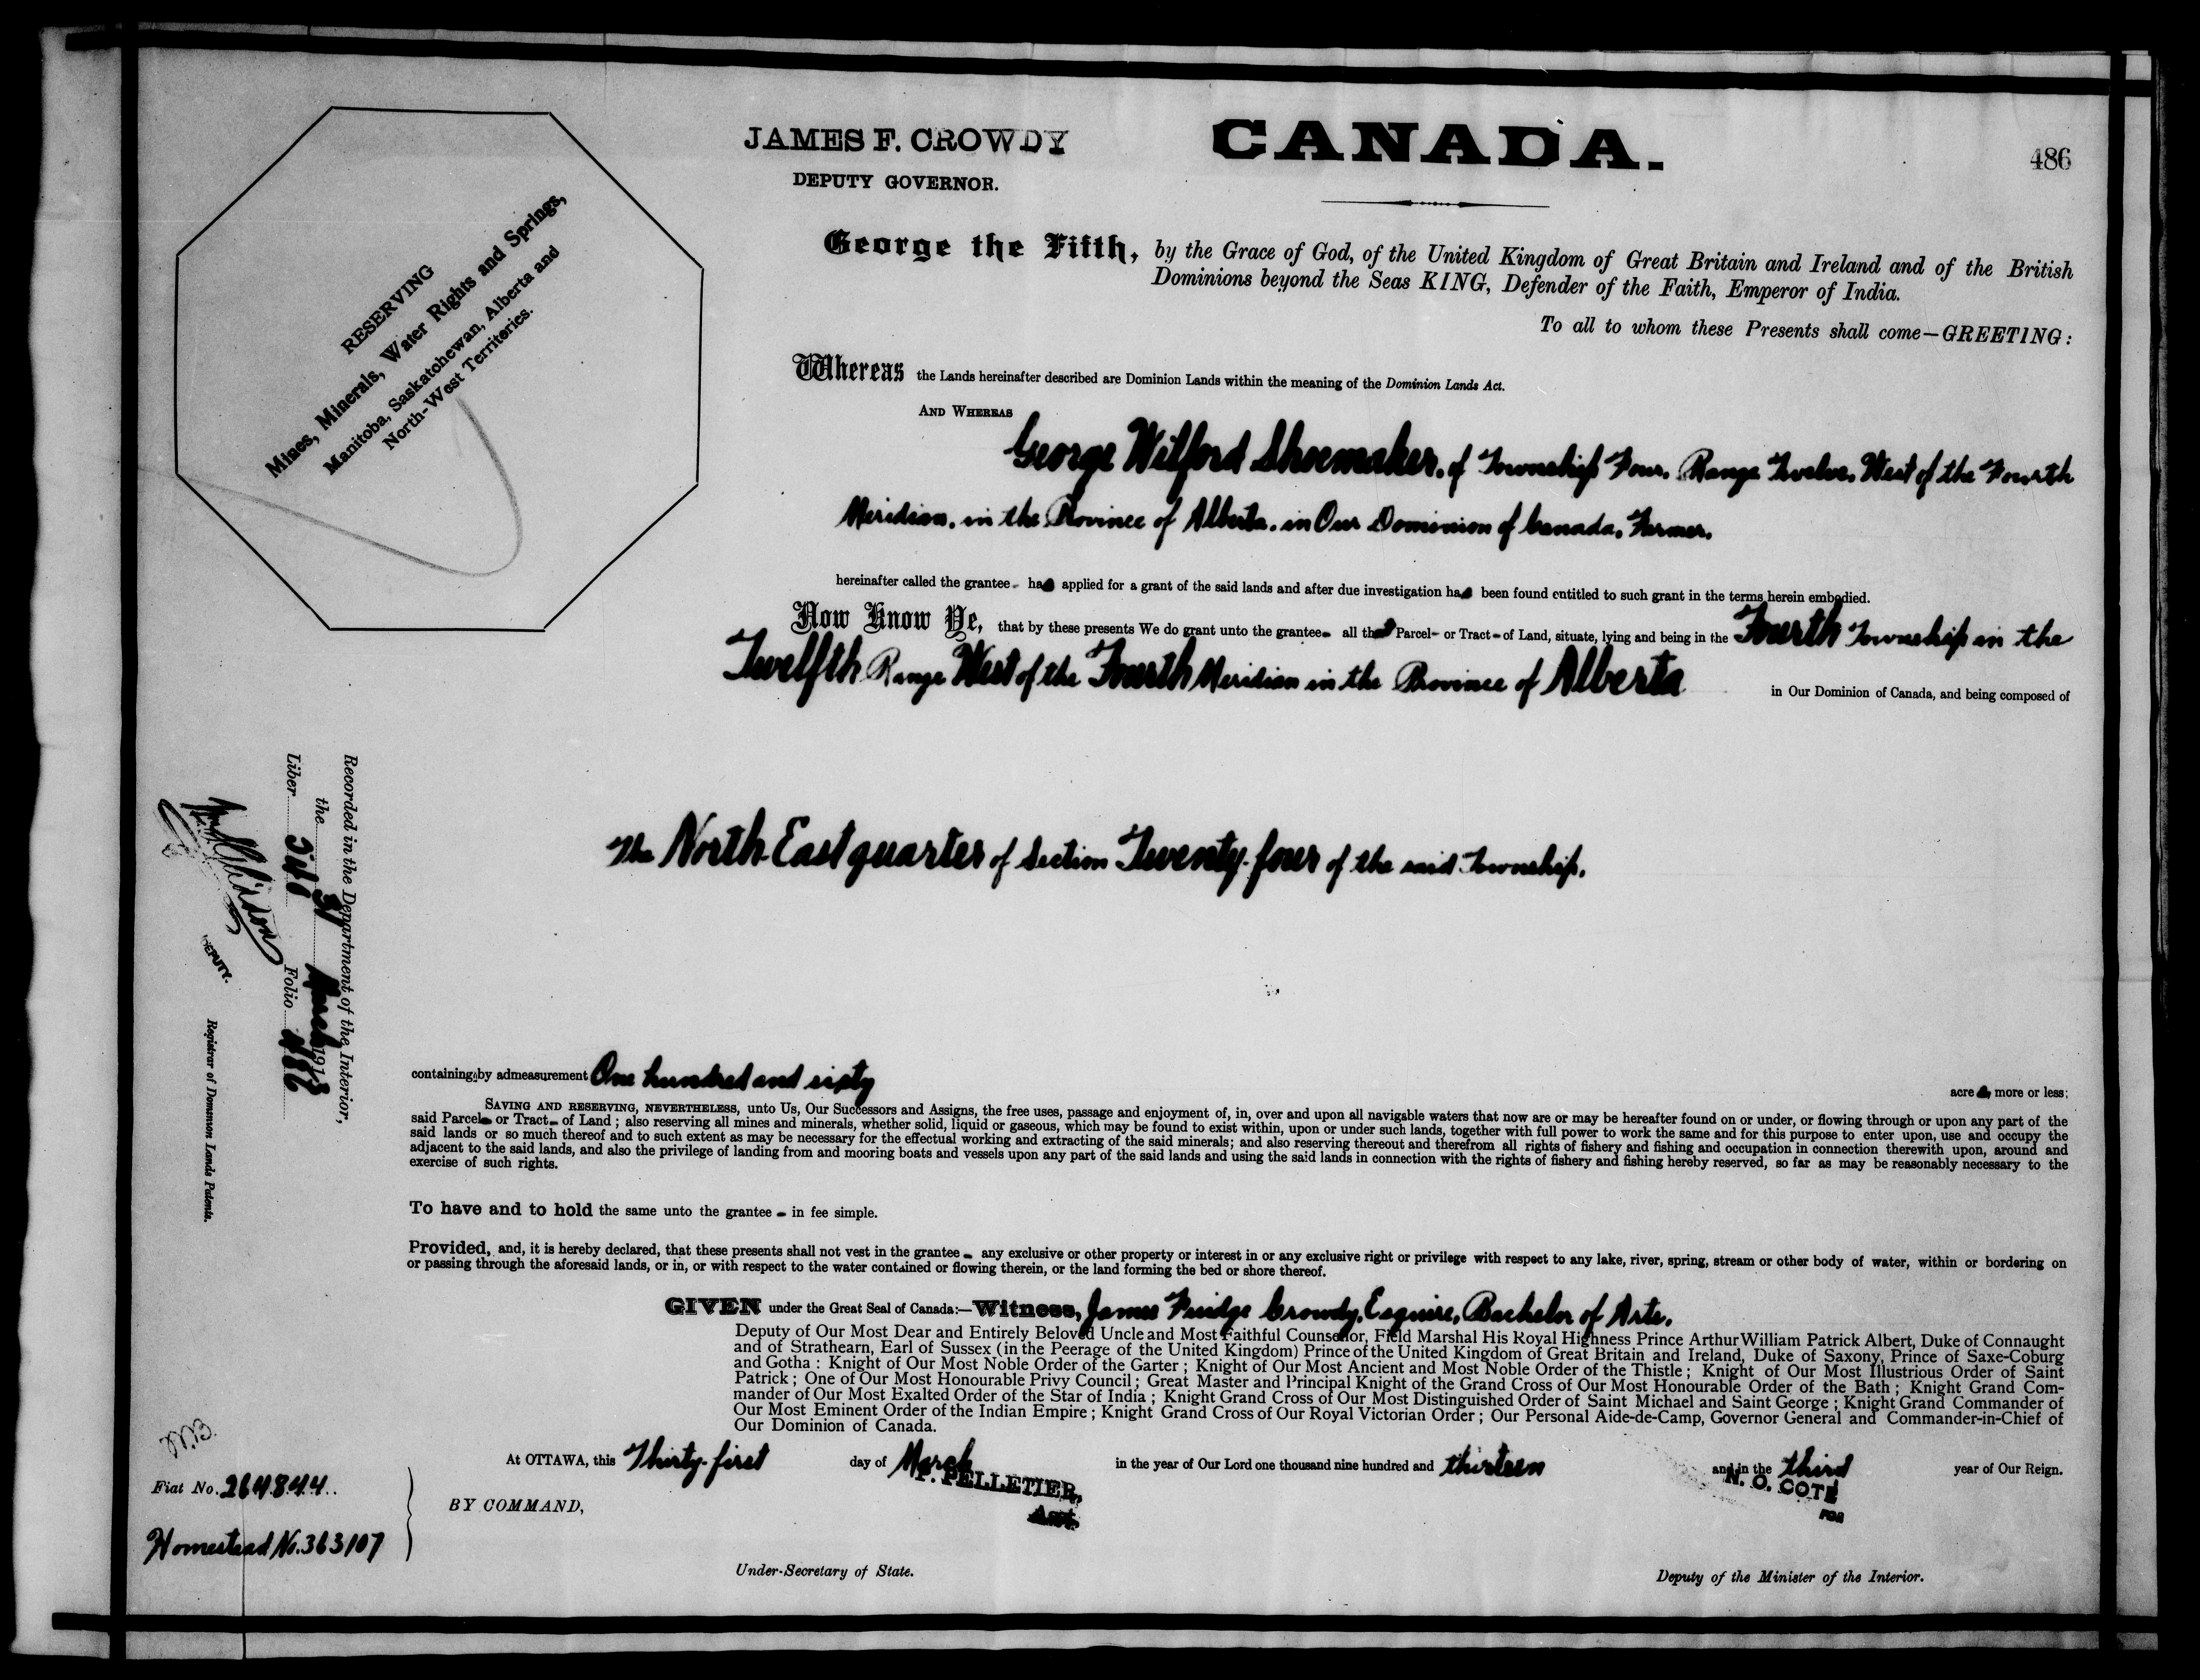 JAMES F. CROWDY
DEPUTY GOVERNOR.
CANADA.
486
RESERVING
Mines, Minerals, Water Rights and Springs,
Manitoba, Saskatchewan, Alberta and
North-West Territories.
George the Fifth, by the Grace of God, of the United Kingdom of Great Britain and Ireland and of the British
Dominions beyond the Seas KING, Defender of the Faith, Emperor of India.
To all to whom these Presents shall come—GREETING:
Whereas the Lands hereinafter described are Dominion Lands within the meaning of the Dominion Lands Act.
AND WHEREAS
George Wilford Shoemaker, of Township Four, Range Twelve, West of the Fourth
Meridian, in the Province of Alberta, in Our Dominion of Canada, Farmer.
hereinafter called the grantee - has applied for a grant of the said lands and after due investigation has been found entitled to such grant in the terms herein embodied.
Now Know Ye, that by these presents We do grant unto the grantee - all that Parcel - or Tract - of Land, situate, lying and being in the Fourth Township in the
Twelfth Range West of the Fourth Meridian in the Province of Alberta in Our Dominion of Canada, and being composed of
The North East quarter of Section Twenty-four of the said Township.
containing by admeasurement One hundred and sixty acres, more or less;
SAVING AND RESERVING, NEVERTHELESS, unto Us, Our Successors and Assigns, the free uses, passage and enjoyment of, in, over and upon all navigable waters that now are or may be hereafter found on or under, or flowing through or upon any part of the
said Parcel - or Tract - of Land; also reserving all mines and minerals, whether solid, liquid or gaseous, which may be found to exist within, upon or under such lands, together with full power to work the same and for this purpose to enter upon, use and occupy the
said lands or so much thereof and to such extent as may be necessary for the effectual working and extracting of the said minerals; and also reserving thereout and therefrom all rights of fishery and fishing and occupation in connection therewith upon, around and
adjacent to the said lands, and also the privilege of landing from and mooring boats and vessels upon any part of the said lands and using the said lands in connection with the rights of fishery and fishing hereby reserved, so far as may be reasonably necessary to the
exercise of such rights.
To have and to hold the same unto the grantee - in fee simple.
Provided, and, it is hereby declared, that these presents shall not vest in the grantee - any exclusive or other property or interest in or any exclusive right or privilege with respect to any lake, river, spring, stream or other body of water, within or bordering on
or passing through the aforesaid lands, or in, or with respect to the water contained or flowing therein, or the land forming the bed or shore thereof.
GIVEN under the Great Seal of Canada:—Witness, James Fuidge Crowdy, Esquire, Bachelor of Arts.
Deputy of Our Most Dear and Entirely Beloved Uncle and Most Faithful Counsellor, Field Marshal His Royal Highness Prince Arthur William Patrick Albert, Duke of Connaught
and of Strathearn, Earl of Sussex (in the Peerage of the United Kingdom) Prince of the United Kingdom of Great Britain and Ireland, Duke of Saxony, Prince of Saxe-Coburg
and Gotha: Knight of Our Most Noble Order of the Garter; Knight of Our Most Ancient and Most Noble Order of the Thistle; Knight of Our Most Illustrious Order of Saint
Patrick; One of Our Most Honourable Privy Council; Great Master and Principal Knight of the Grand Cross of Our Most Honourable Order of the Bath; Knight Grand Com-
mander of Our Most Exalted Order of the Star of India; Knight Grand Cross of Our Most Distinguished Order of Saint Michael and Saint George; Knight Grand Commander of
Our Most Eminent Order of the Indian Empire; Knight Grand Cross of Our Royal Victorian Order; Our Personal Aide-de-Camp, Governor General and Commander-in-Chief of
Our Dominion of Canada.
At OTTAWA, this Thirty-first day of March in the year of Our Lord one thousand nine hundred and thirteen and in the third year of Our Reign.
P. PELLETIER,
Act.
N. O. COTE
FOR
BY COMMAND,
Under-Secretary of State.
Deputy of the Minister of the Interior.
Recorded in the Department of the Interior,
the 31 March 1913
Liber Folio 486
DEPUTY.
Registrar of Dominion Lands Patents.
Fiat No. 264844
Homestead No. 363107